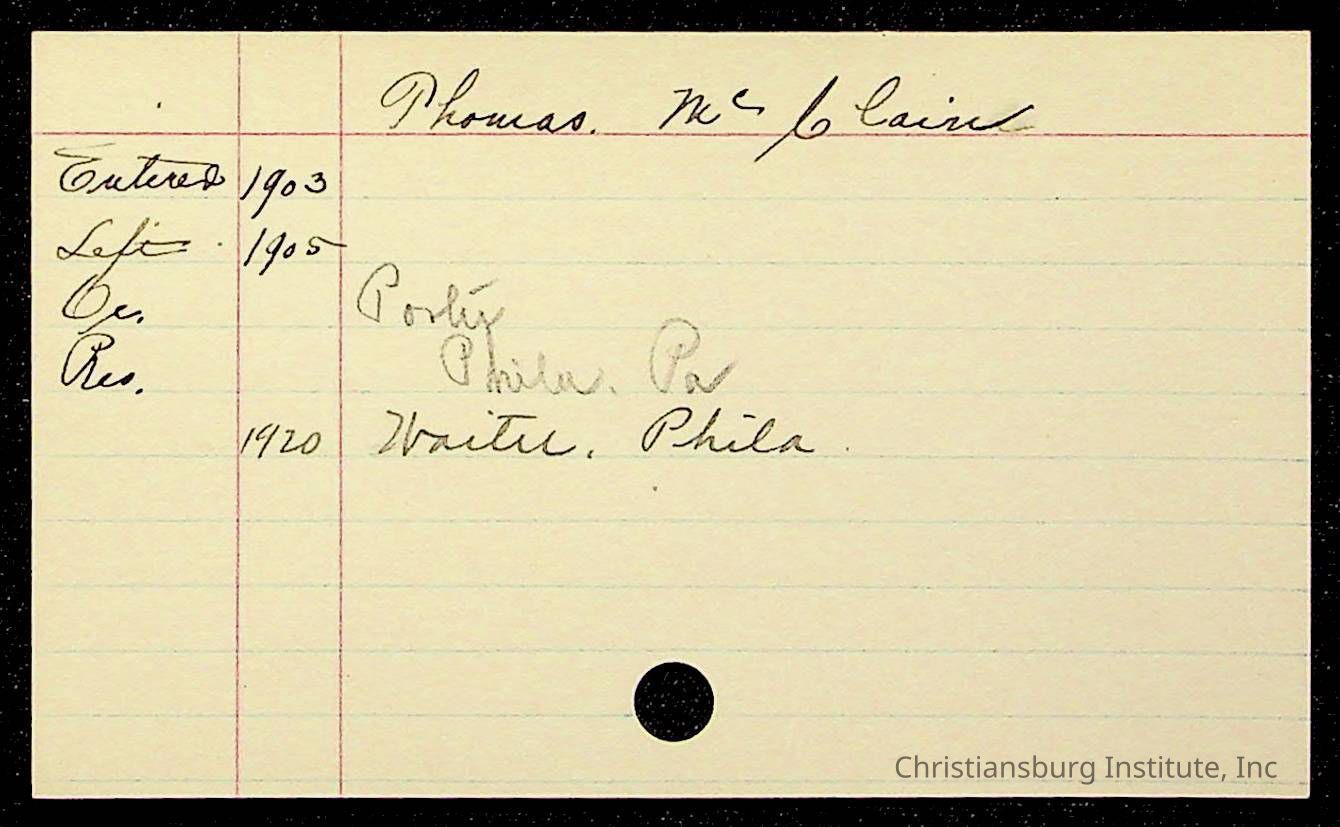 Thomas. Mc Clain
Entered 1903
Left 1905
Oc.
Res. Phila. Pa
1920 Waiter. Phila.
Christiansburg Institute, Inc